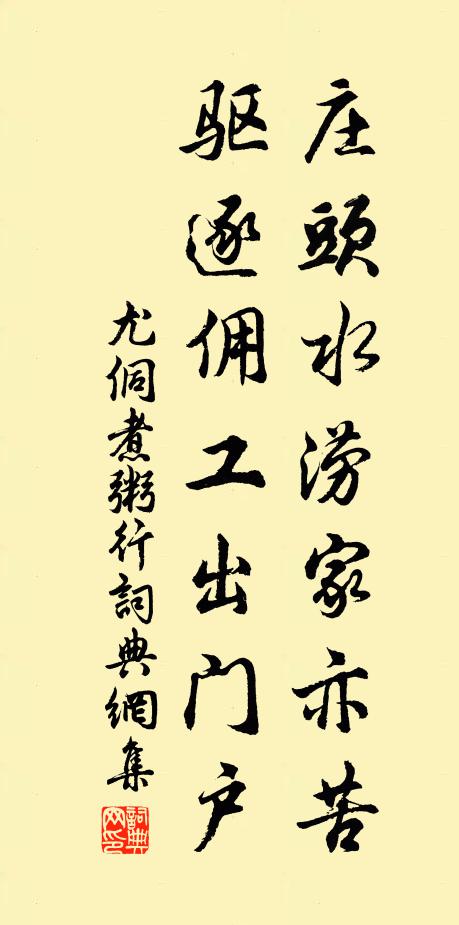 庄頭水涝家亦苦
驱逐佣工出门户
尤侗煮粥行詞典網集
詞典网印